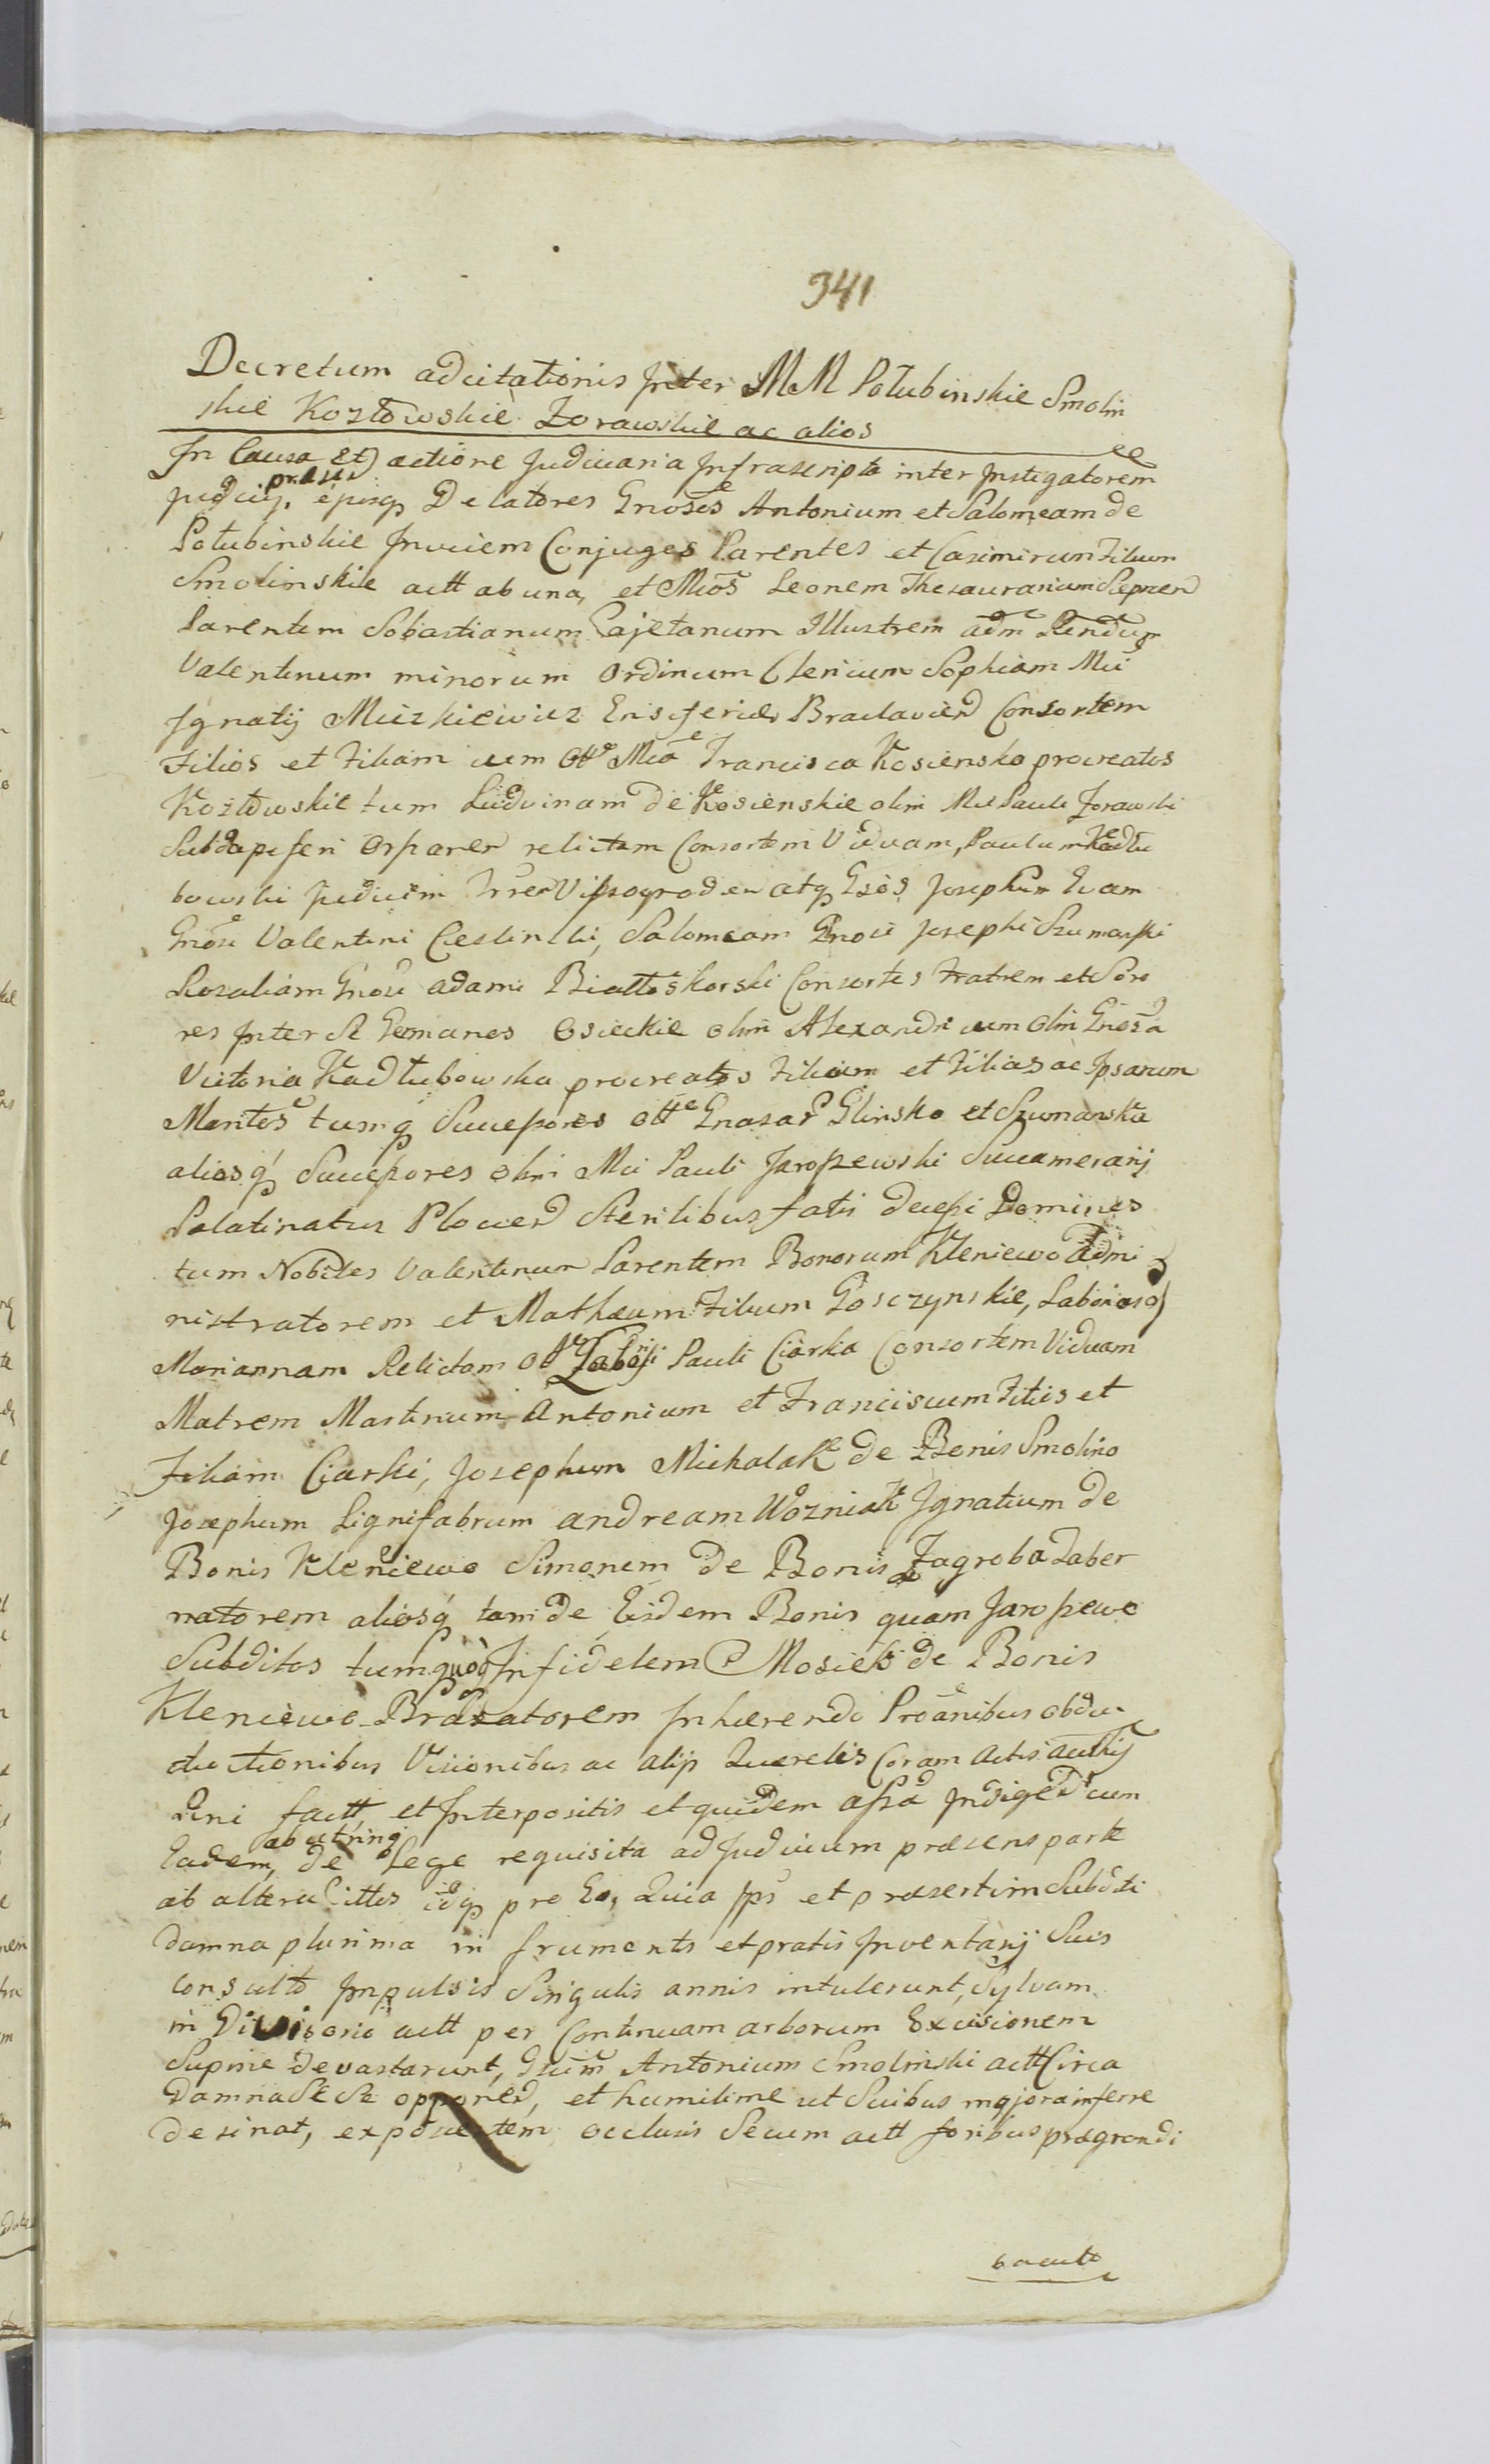 941
Decretum adcitationis Inter MM Połubinskie Smolin
skie Kozłowskie Zorawskie ac alios
In Causa Et actione Judiciaria Infrascripta inter Instigatorem
Judicij præsen ejusq Delatores Gnosos Antonium et Salomeam de
Połubinskie Invicem Conjuges Parentes et Casimirum Filium
Smolinskie actt ab una, et Mcos Leonem Thesaurarium
Parentem Sobastianum Cajetanum Illustrem adm Rndum
Valentinum minorum Ordinum Clericum Sophiam Mci
Ignatij Mickiewicz Ensiferidæ Braclavien Consortem
Filios et Filiam cum Mca Francisca Kosiensko procreatos
Kozłowskie tum Ludvinam de Kosienskie olim Mci Pauli Zorawski
Subdapiferi relictam Consortem Viduam, Paulum Kadłu
bowski Judicem Trren Vissogroden atq Gsos Josephum Evam
Gnosi Valentini Cieslinski, Salomeam Gnosi Josephi Szumanski
Rosaliam Gnosi adami Białłoskorski Consortes Fratrem et Soro
res Inter Se Germanos Osieckie olim Alexandri cum olim Gnosa
Victoria Kadłubowska procreatos Filium et Filias ac Ipsarum
Maritos tumq Sucessores Gnosar Glinska et Szumanska
aliosq Sucessores olim Mci Pauli Jaroszewski Succamerarij
Palatinatus Plocen Sterilibus fatis decessi Domines
tum Nobiles Valentinum Parentem Bonorum Kleniewo admi
nistratorem et Matheum Filium Gosczynskie, Laboriosq
Mariannam Relictam Labosi Pauli Ciarka Consortem Viduam
Matrem Martinum Antonium et Franciscum Filios et
Filiam Ciarki, Josephum Michalak de Bonis Smolino
Josephum Lignifabrum andream Wozniak Ignatium de
Bonis Kleniewo Simonem de Bonis Zagroba Taber
natorem aliosq tam de Eisdem Bonis quam Jaroszewo
Subditos tumq quoq Infidelem Mosiek de Bonis
Kleniewo Braxatorem Inhærendo obdu
ctionibus Visionibus ac alijs Querelis Coram Actis
factt et Interpositis et quidem cum
Eadem, ab utrinq de Lege requisita ad Judicium præsens parte
ab altera Cittos idq pro Eo, Quia Ipsi et præsertim Subditi
damna plurima in frumentis et pratis Inventarij Suis
consulto Impulsis Singulis annis intulerunt, Sylvam
in Divisorio actt per Continuam arborum Excisionem
Supine devastarunt, Antonium Smolinski actt Circa
Damna Se Se opponen, et humilime ut Suibus majora inferre
desinat, exponentem occlusis Secum actt foribus prægrandi
baculo